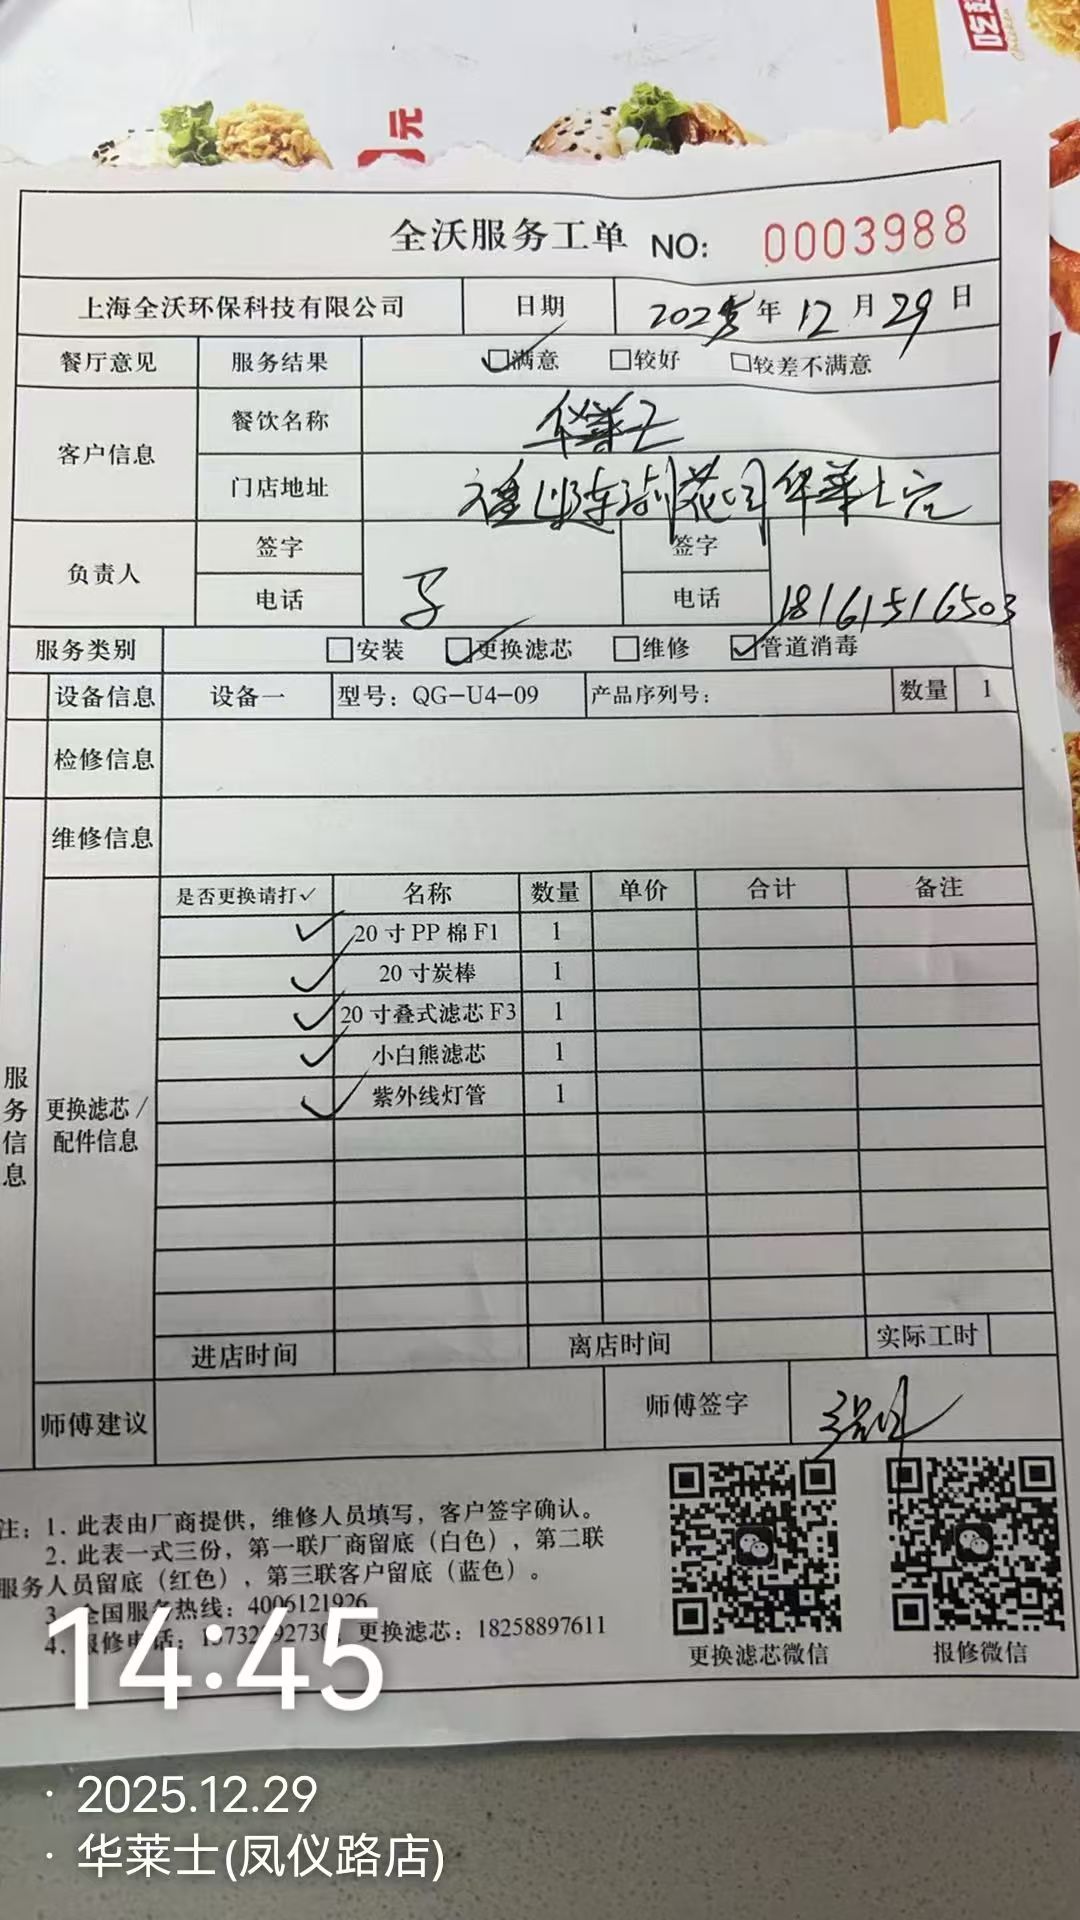 吃
元
全沃服务工单 NO: 0003988
上海全沃环保科技有限公司 日期 2025年12月29日
餐厅意见 服务结果 ☑满意 □较好 □较差不满意
客户信息 餐饮名称 华莱士
门店地址 花园华莱士店
负责人 签字 签字
电话 电话 18161516503
服务类别 □安装 ☑更换滤芯 □维修 ☑管道消毒
设备信息 设备一 型号：QG-U4-09 产品序列号： 数量 1
检修信息
维修信息
服务信息
更换滤芯/配件信息
是否更换请打✓ 名称 数量 单价 合计 备注
✓ 20寸PP棉F1 1
✓ 20寸炭棒 1
✓ 20寸叠式滤芯F3 1
✓ 小白熊滤芯 1
✓ 紫外线灯管 1
进店时间 离店时间 实际工时
师傅建议 师傅签字
注：1. 此表由厂商提供，维修人员填写，客户签字确认。
2. 此表一式三份，第一联厂商留底（白色），第二联
服务人员留底（红色），第三联客户留底（蓝色）。
3. 全国服务热线：4006121926
4. 报修电话： 更换滤芯：18258897611
更换滤芯微信 报修微信
14:45
· 2025.12.29
· 华莱士(凤仪路店)